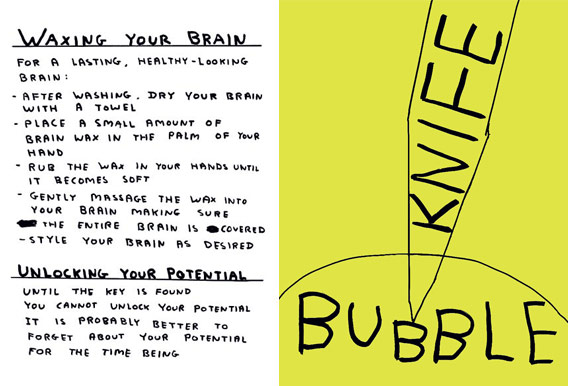 WAXING YOUR BRAIN
FOR A LASTING, HEALTHY-LOOKING
BRAIN:
- AFTER WASHING, DRY YOUR BRAIN
WITH A TOWEL
- PLACE A SMALL AMOUNT OF
BRAIN WAX IN THE PALM OF YOUR
HAND
- RUB THE WAX IN YOUR HANDS UNTIL
IT BECOMES SOFT
- GENTLY MASSAGE THE WAX INTO
YOUR BRAIN MAKING SURE
THE ENTIRE BRAIN IS COVERED
- STYLE YOUR BRAIN AS DESIRED
UNLOCKING YOUR POTENTIAL
UNTIL THE KEY IS FOUND
YOU CANNOT UNLOCK YOUR POTENTIAL
IT IS PROBABLY BETTER TO
FORGET ABOUT YOUR POTENTIAL
FOR THE TIME BEING
KNIFE
BUBBLE